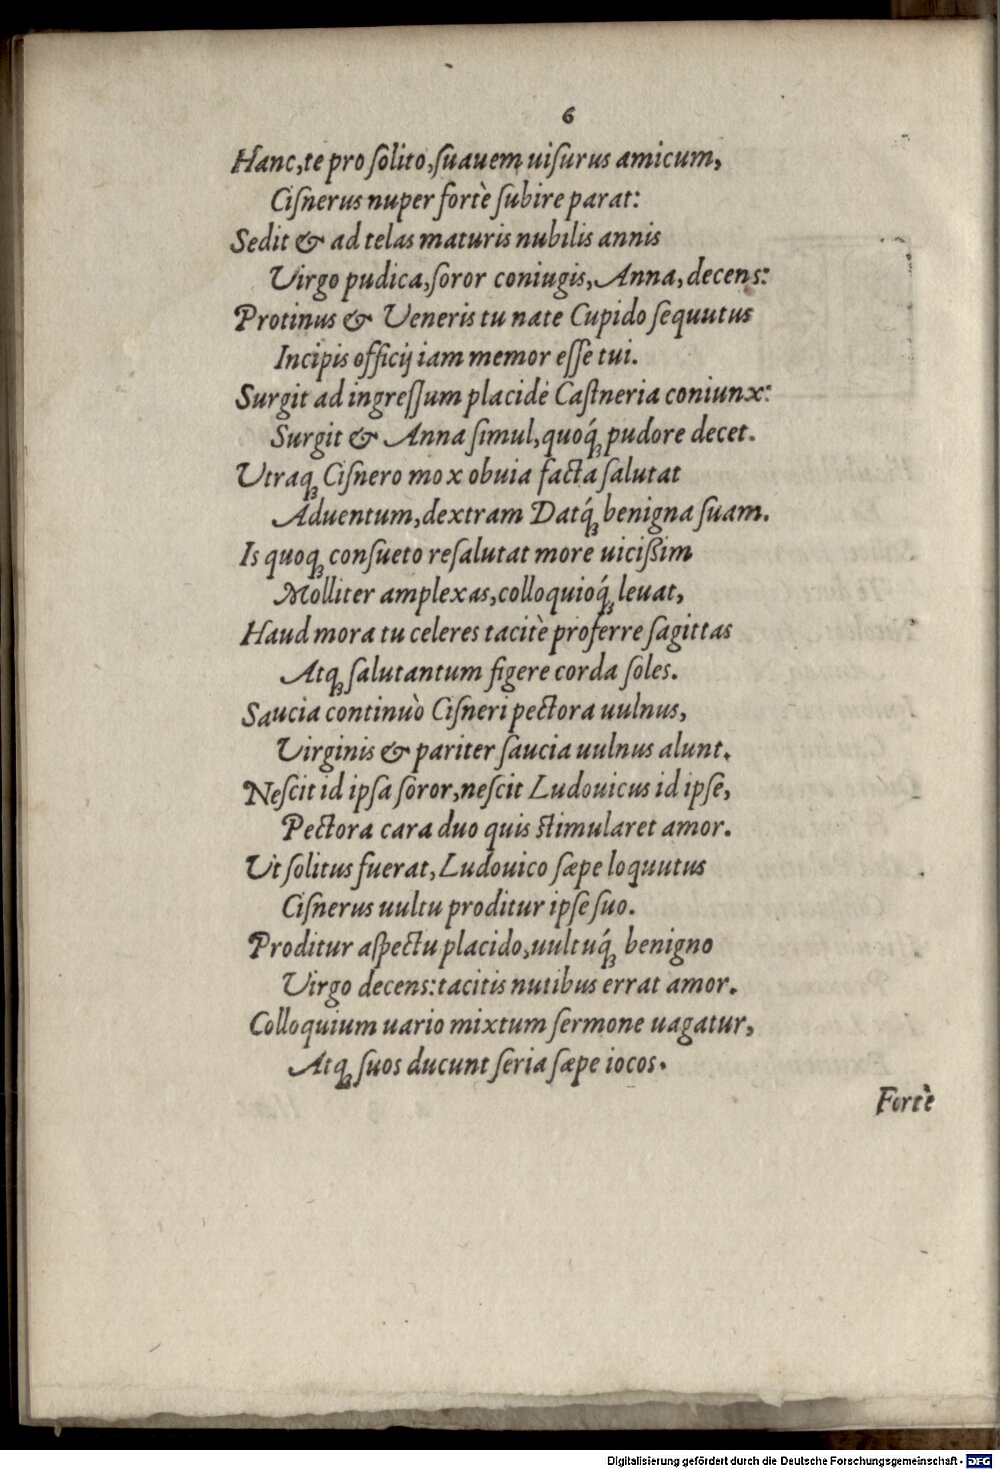 6
Hanc,te pro ſolito,ſuauem uiſurus amicum,
Ciſnerus nuper fortè ſubire parat:
Sedit & ad telas maturis nubilis annis
Virgo pudica,ſoror coniugis,Anna,decens:
Protinus & Veneris tu nate Cupido ſequutus
Incipis officij iam memor eſſe tui.
Surgit ad ingreſſum placidè Caſtneria coniunx:
Surgit & Anna ſimul,quoq́ꝫ pudore decet.
Vtraqꝫ Ciſnero mox obuia facta ſalutat
Aduentum,dextram Datq́ꝫ benigna ſuam.
Is quoqꝫ conſueto reſalutat more uicißim
Molliter amplexas,colloquioq́ꝫ leuat,
Haud mora tu celeres tacitè proferre ſagittas
Atqꝫ ſalutantum figere corda ſoles.
Saucia continuò Ciſneri pectora uulnus,
Virginis & pariter ſaucia uulnus alunt.
Neſcit id ipſa ſoror,neſcit Ludouicus id ipſe,
Pectora cara duo quis ſtimularet amor.
Vt ſolitus fuerat,Ludouico ſæpe loquutus
Ciſnerus uultu proditur ipſe ſuo.
Proditur aſpectu placido,uultuq́ꝫ benigno
Virgo decens:tacitis nutibus errat amor.
Colloquium uario mixtum ſermone uagatur,
Atqꝫ ſuos ducunt ſeria ſæpe iocos.
Fortè
Digitalisierung gefördert durch die Deutsche Forschungsgemeinschaft - DFG